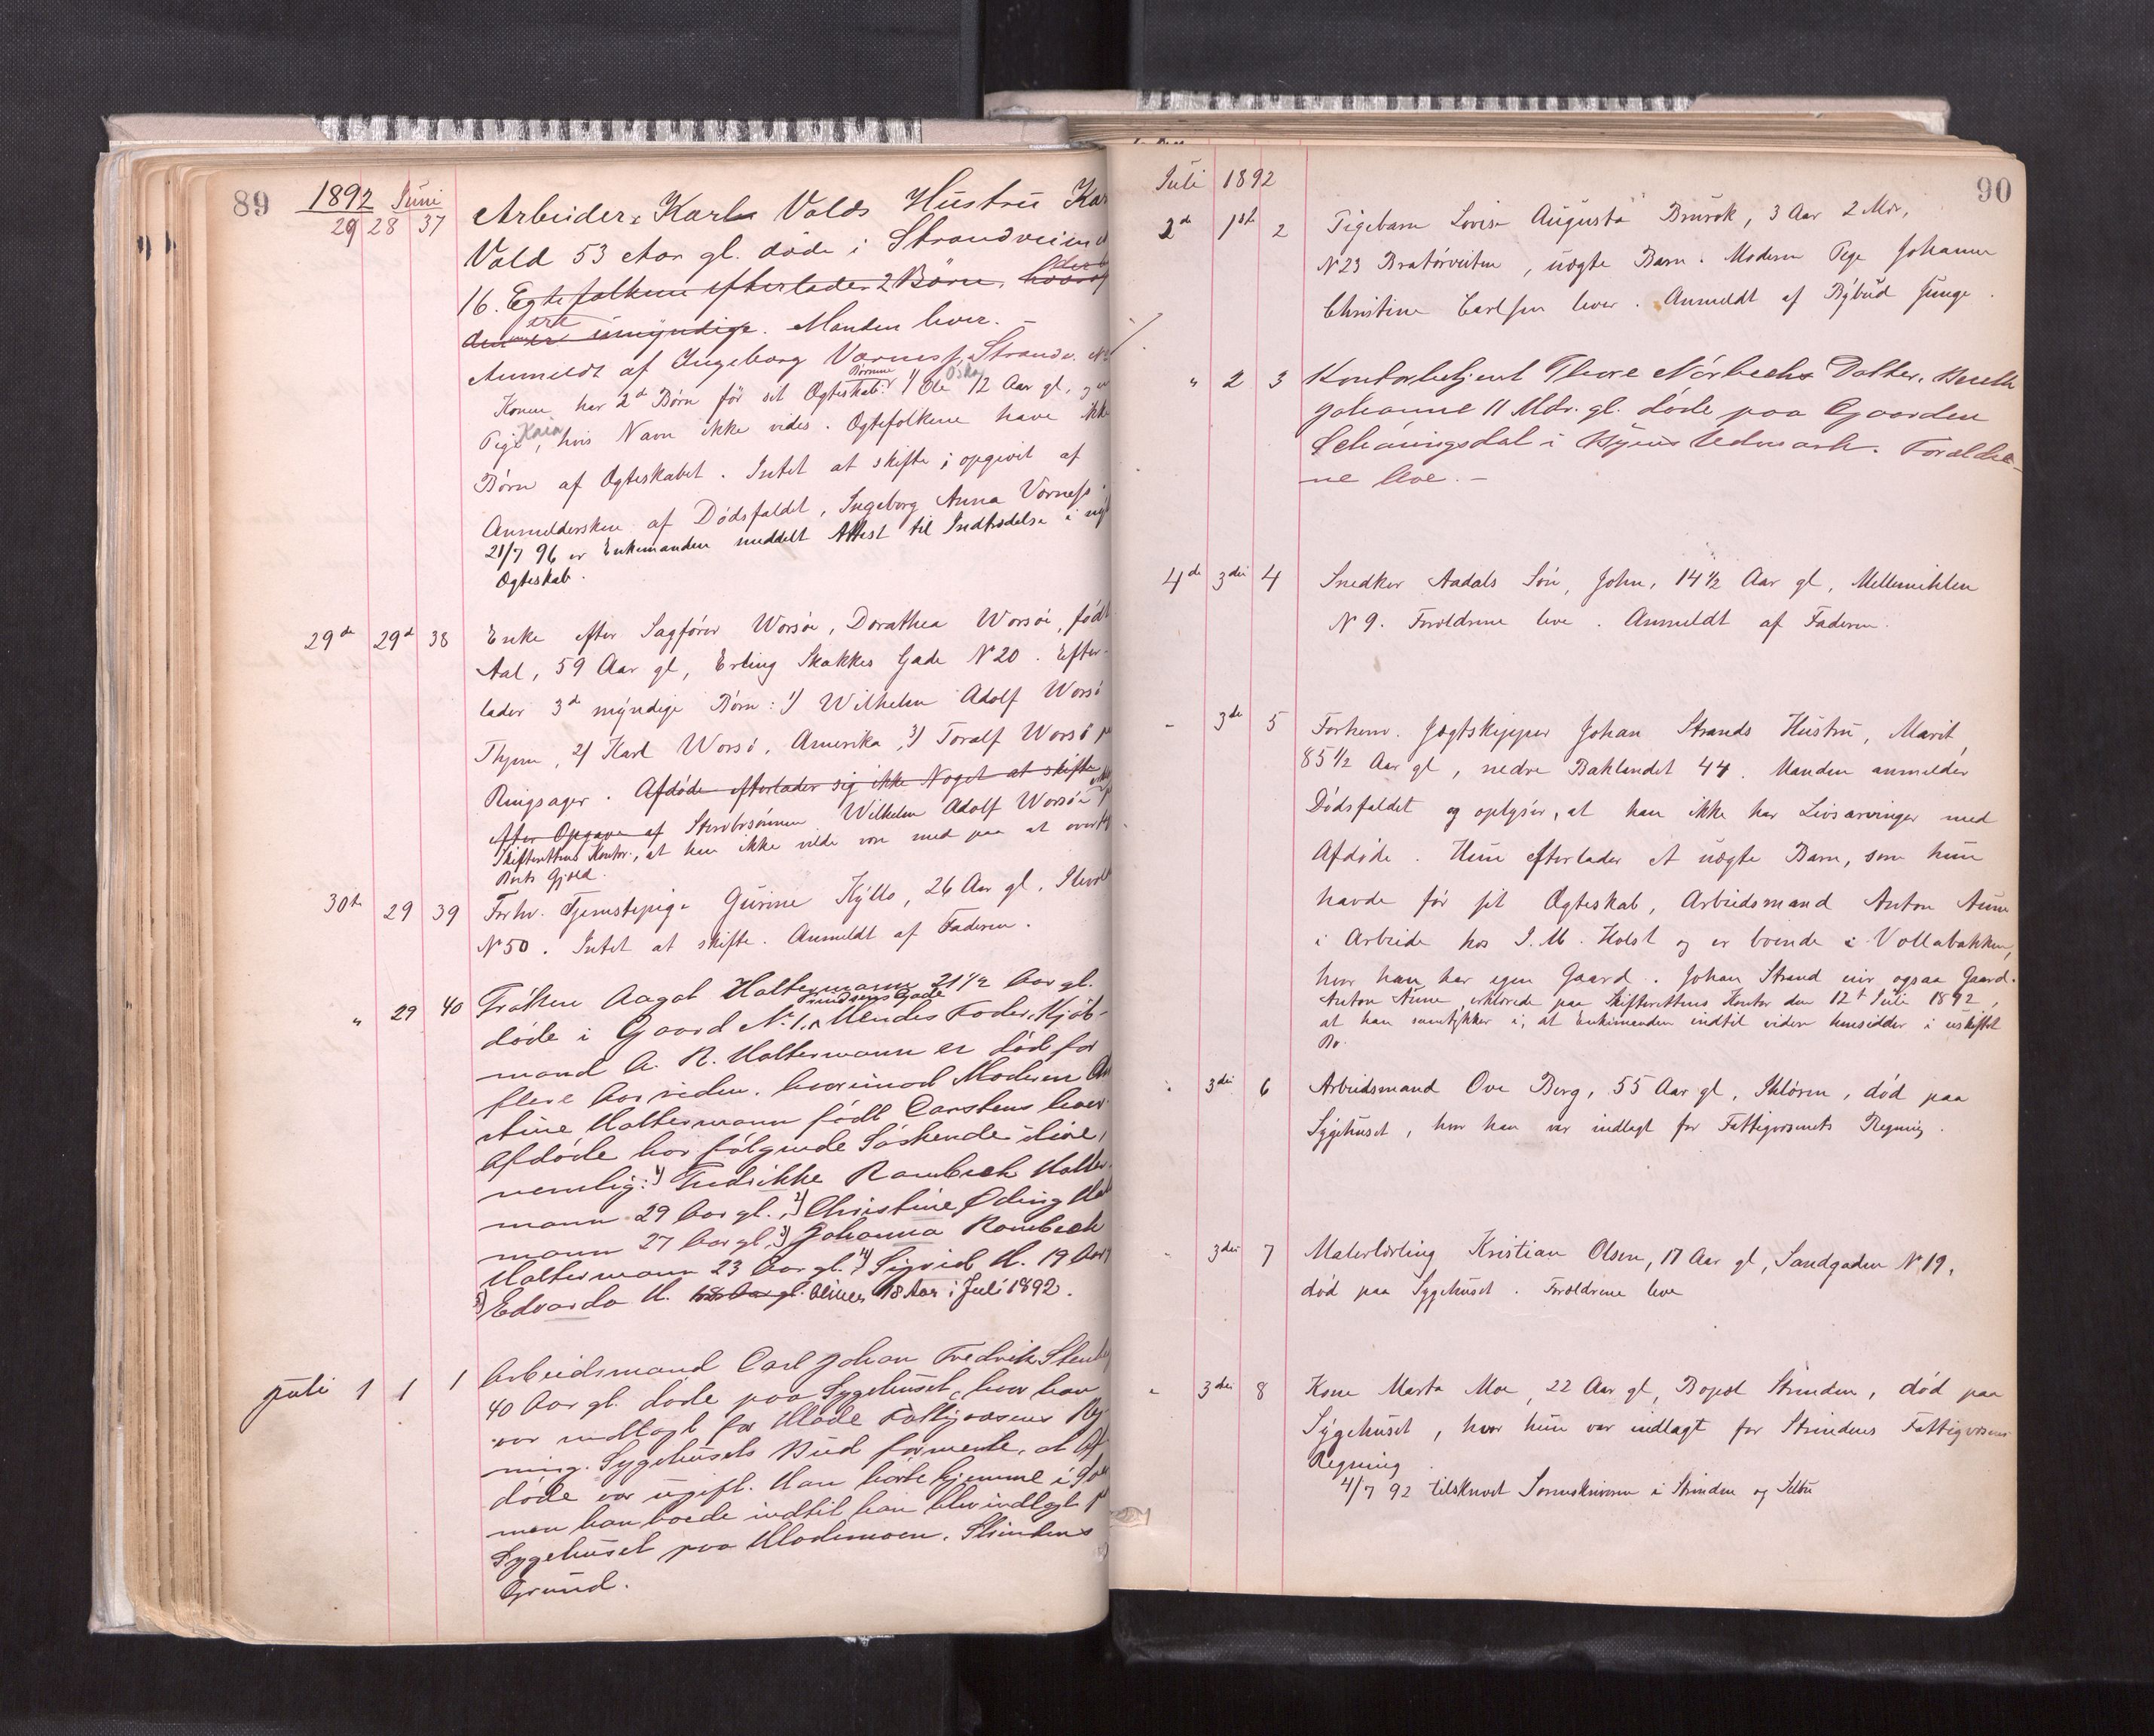 89 1892 Juni
29 28 37 Arbeider Karl Valds Hustru
Vald 53 Aar gl. døde i Strandveien
16. Egtefolkene efterlader 2 Børn,
ere
umyndige. Manden lever. –
Anmeldt af Ingeborg Værness, Strandv. N
Konen har 2de Børn før sit Ægteskab: 1) Ole Oskar 12 Aar gl, og en
Pige Kaia, hvis Navn ikke vides. Ægtefolkene have ikke
Børn af Ægteskabet. Intet at skifte; opgivet af
Anmeldersken af Dødsfaldet, Ingeborg Anna Værness.
21/7 96 er Enkemanden meddelt Attest til Indtrædelse i nyt
Ægteskab.
29de 29d 38 Enke efter Sagfører Worsøe, Dorathea Worsøe, født
Aal, 59 Aar gl, Erling Skakkes Gade N 20. Efter-
lader 3de myndige Børn: 1) Wilhelm Adolf Worsø
Thjem, 2) Karl Worsø, Amerika, 3) Toralf Worsø
Ringsager. Afdøde efterlader sig ikke Noget at skifte
efter Opgave af Stervbosønnen Wilhelm Adolf Worsøe
Skifterettens Kontor, at han ikke vilde være med paa at overtage
Boets Gjæld.
30te 29 39 Forhv. Tjenestepige Gurine Kyllo, 26 Aar gl,
N 50. Intet at skifte. Anmeldt af Faderen.
" 29 40 Frøken Aagot Haltermann 21 1/2 Aar gl.
døde i Gaard N. 1, Prindsens Gade. Hendes Fader, Kjøb-
mand A. R. Haltermann er død for
flere Aar siden, hvorimod Moderen
stine Haltermann født Carstens lever.
Afdøde har følgende Søskende ilive,
nemlig: 1) Fredrikke Rambech Halter-
mann 29 Aar gl., 2) Christine Øding Halter
mann 27 Aar gl., 3) Johanna Rambech
Haltermann 23 Aar gl. 4) Sigrid H. 19 Aar
5) Edvarda H. 18 Aar gl. bliver 18 Aar i Juli 1892.
Juli 1 1 1 Arbeidsmand Carl Johan Fredrik
40 Aar gl. døde paa Sygehuset, hvor han
var indlagt for Hlade Fattigvæsens Reg-
ning. Sygehusets Bud formente, at Af-
døde var ugift. Han hørte hjemme i
men han boede indtil han blev indlagt
Sygehuset paa Hlademoen, Strindens
Grund.
Juli 1892 90
2d 1ste 2 Pigebarn Lovise Augusta Brurok, 3 Aar 2 Mdr,
N 23 Bratørveiten, uægte Barn. Moderen Pige Johanne
Christine Carlsen lever. Anmeldt af Bybud Junge.
" 2 3 Kontorbetjent Thore Nørbechs Datter, Bereth
Johanne 11 Mdr. gl. døde paa Gaarden
Schøningsdal i Byens Udmark. Forældre-
ne leve. –
4de 3die 4 Snedker Aadals Søn, John, 14 1/2 Aar gl, Mellemihlen
N 9. Forældrene leve. Anmeldt af Faderen.
– 3de 5 Forhenv. Jægtskipper Johan Strands Hustru, Marit,
85 1/2 Aar gl, nedre Baklandet 44. Manden anmelder
Dødsfaldet og oplyser, at han ikke har Livsarvinger med
Afdøde. Hun efterlader et uægte Barn, som hun
havde før sit Ægteskab, Arbeidsmand Anton Aune
i Arbeide hos I. M. Holst og er boende i Vollabakken,
hvor han har egen Gaard. Johan Strand eier ogsaa Gaard.
Anton Aune erklærede paa Skifterettens Kontor den 12te Juli 1892,
at han samtykker i, at Enkemanden indtil videre hensidder i uskiftet
Bo.
" 3die 6 Arbeidsmand Ove Berg, 55 Aar gl, Ihløren, død paa
Sygehuset, hvor han var indlagt for Fattigvæsenets Regning.
" 3die 7 Malerlærling Kristian Olsen, 17 Aar gl, Sandgaden N 19,
død paa Sygehuset. Forældrene leve
" 3die 8 Kone Marta Moe, 22 Aar gl, Bopæl Strinden, død paa
Sygehuset, hvor hun var indlagt for Strindens Fattigvæsens
Regning.
4/7 92 tilskrevet Sorenskriveren i Strinden og Selbu